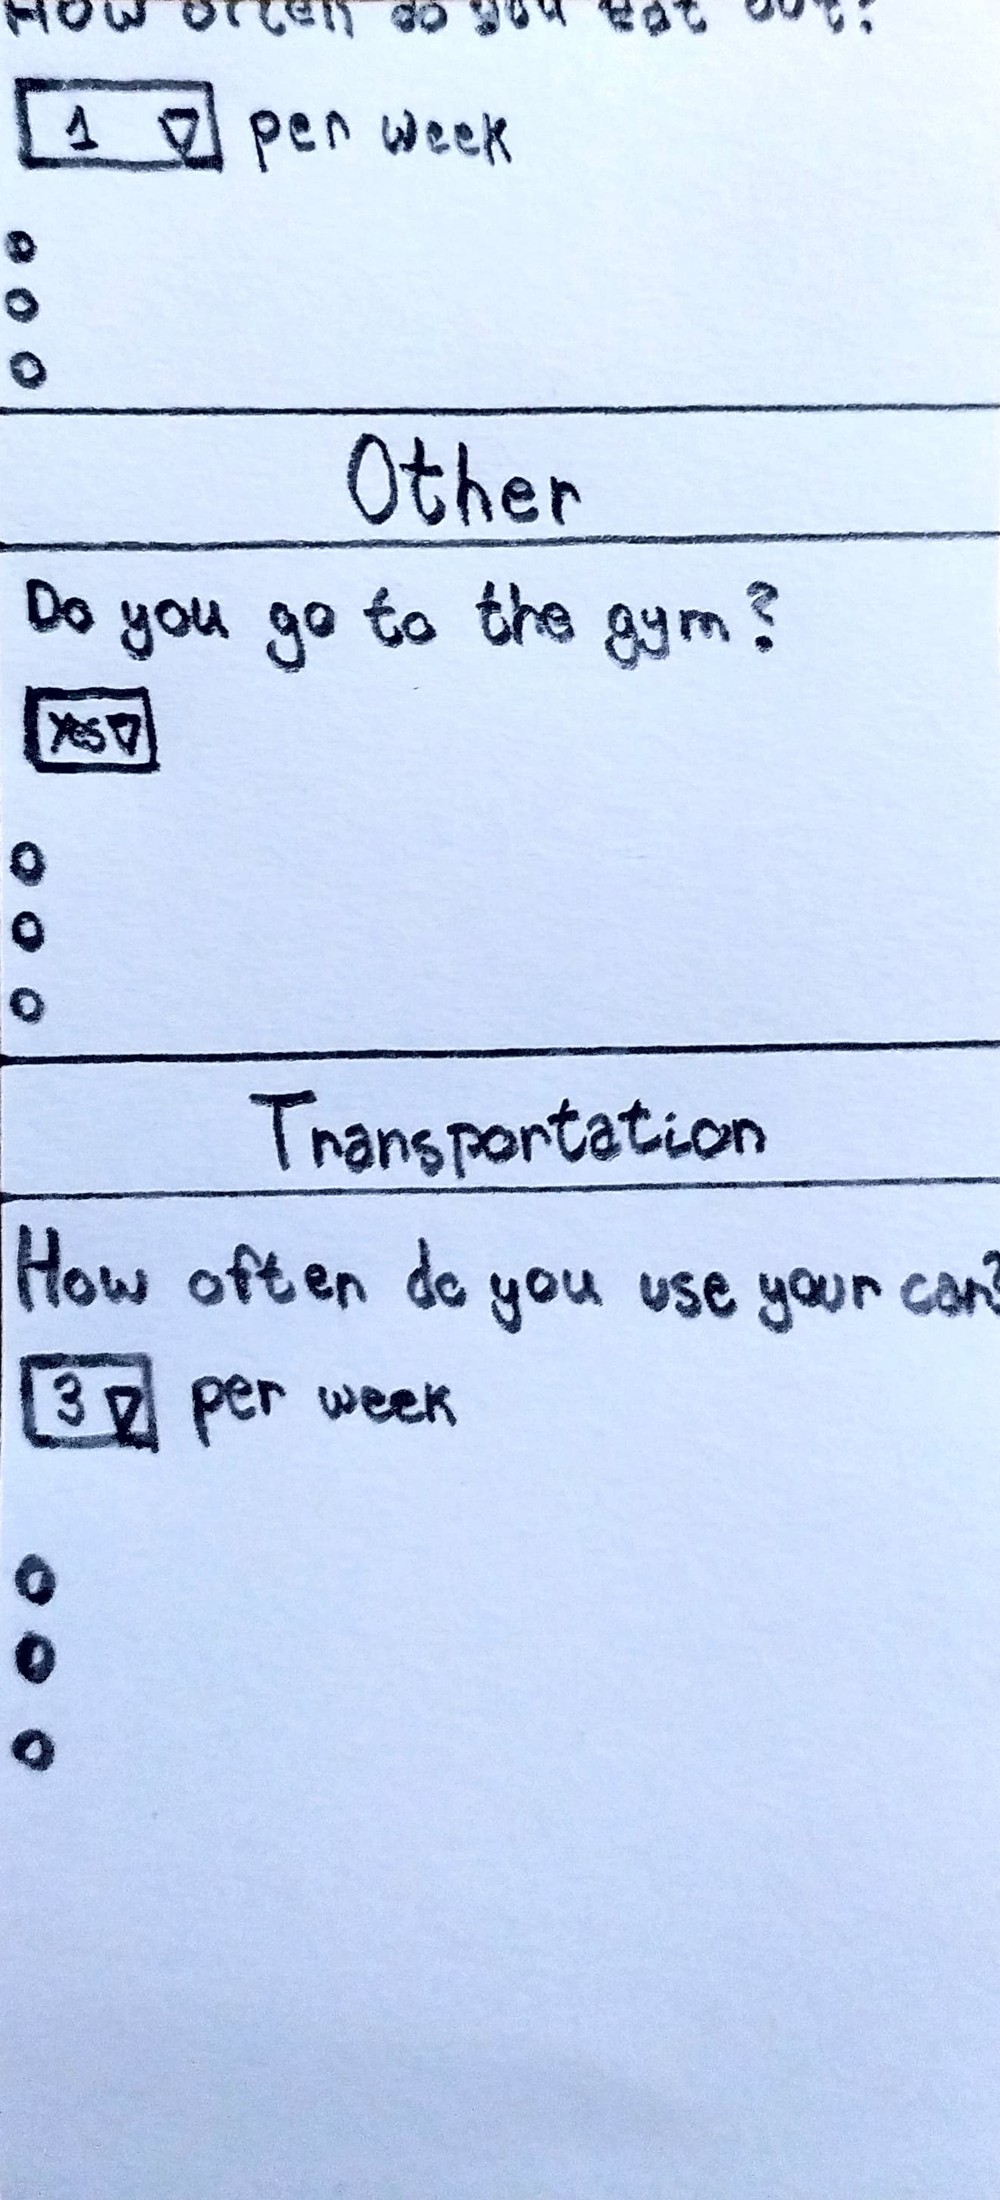 How often do you eat out?
1 per week
Other
Do you go to the gym?
Yes
Transportation
How often do you use your car?
3 per week